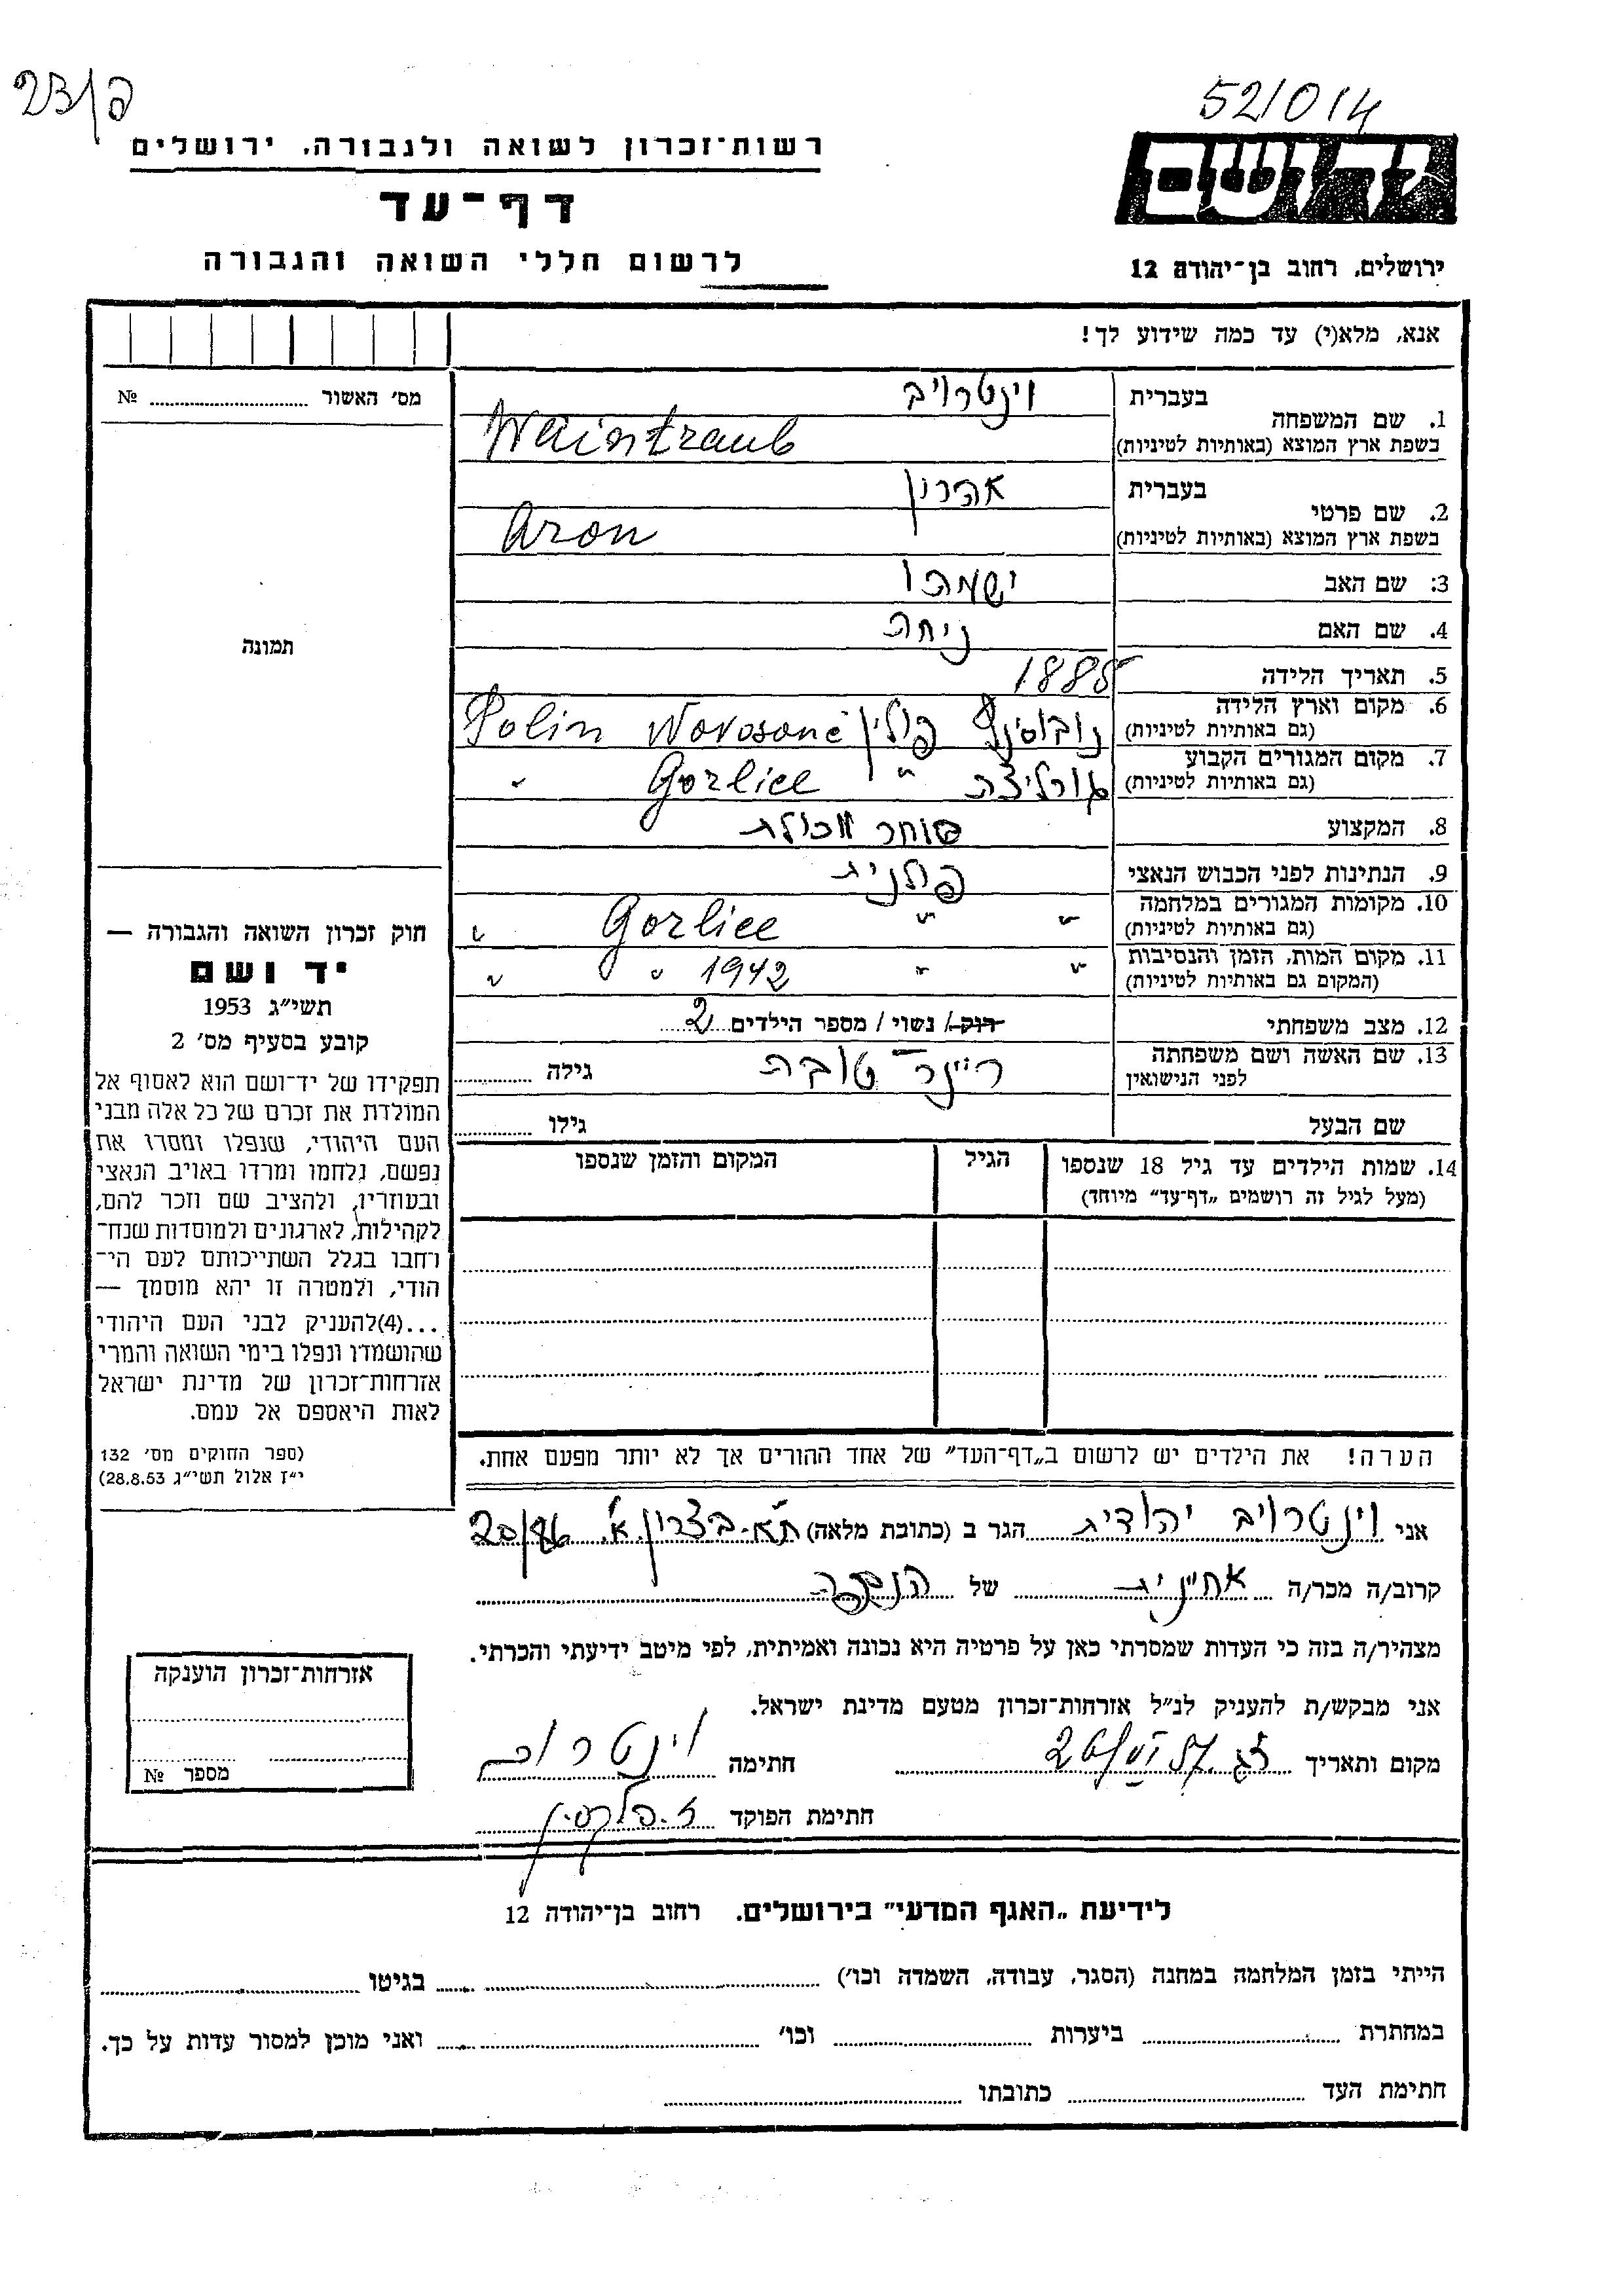 23/פ
52/014
רשות־זכרון לשואה ולגבורה, ירושלים
דף־עד
לרשום חללי השואה והגבורה
יד ושם
ירושלים, רחוב בן־יהודה 12
אנא, מלא(י) עד כמה שידוע לך!
מס' האשור № 
תמונה
בעברית וינטרויב
1. שם המשפחה
בשפת ארץ המוצא (באותיות לטיניות) Waintraub
בעברית אהרון
2. שם פרטי
בשפת ארץ המוצא (באותיות לטיניות) Aron
3. שם האב
4. שם האם
5. תאריך הלידה 1885
6. מקום וארץ הלידה
(גם באותיות לטיניות) פולין Polin
7. מקום המגורים הקבוע
(גם באותיות לטיניות) גורליצה " Gorlice "
8. המקצוע סוחר מכולת
9. הנתינות לפני הכבוש הנאצי פולנית
10. מקומות המגורים במלחמה
(גם באותיות לטיניות) " " Gorlice "
11. מקום המות, הזמן והנסיבות
(המקום גם באותיות לטיניות) " " 1942 " "
12. מצב משפחתי רוק / נשוי / מספר הילדים 2
13. שם האשה ושם משפחתה
לפני הנישואין טובה גילה
שם הבעל גילו
14. שמות הילדים עד גיל 18 שנספו
(מעל לגיל זה רושמים „דף־עד" מיוחד)
הגיל
המקום והזמן שנספו
חוק זכרון השואה והגבורה —
יד ושם
תשי"ג 1953
קובע בסעיף מס' 2
תפקידו של יד־ושם הוא לאסוף אל
המולדת את זכרם של כל אלה מבני
העם היהודי, שנפלו ומסרו את
נפשם, נלחמו ומרדו באויב הנאצי
ובעוזריו, ולהציב שם וזכר להם,
לקהילות, לארגונים ולמוסדות שנח־
רחבו בגלל השתייכותם לעם הי־
הודי, ולמטרה זו יהא מוסמך —
...(4)להעניק לבני העם היהודי
שהושמדו ונפלו בימי השואה והמרי
אזרחות־זכרון של מדינת ישראל
לאות היאספם אל עמם.
(ספר החוקים מס' 132
י"ז אלול תשי"ג 28.8.53)
הערה! את הילדים יש לרשום ב„דף־העד" של אחד ההורים אך לא יותר מפעם אחת.
אני וינטרויב יהודית הגר ב (כתובת מלאה) ת"א בצרון א'
קרוב/ה מכר/ה אחינית של הנספה
מצהיר/ה בזה כי העדות שמסרתי כאן על פרטיה היא נכונה ואמיתית, לפי מיטב ידיעתי והכרתי.
אני מבקש/ת להעניק לנ"ל אזרחות־זכרון מטעם מדינת ישראל.
מקום ותאריך 26/VI 57 חתימה וינטרוב
חתימת הפוקד
אזרחות־זכרון הוענקה
מספר №
לידיעת „האגף המדעי" בירושלים. רחוב בן־יהודה 12
הייתי בזמן המלחמה במחנה (הסגר, עבודה, השמדה וכו') בגיטו
במחתרת ביערות וכו' ואני מוכן למסור עדות על כך.
חתימת העד כתובתו